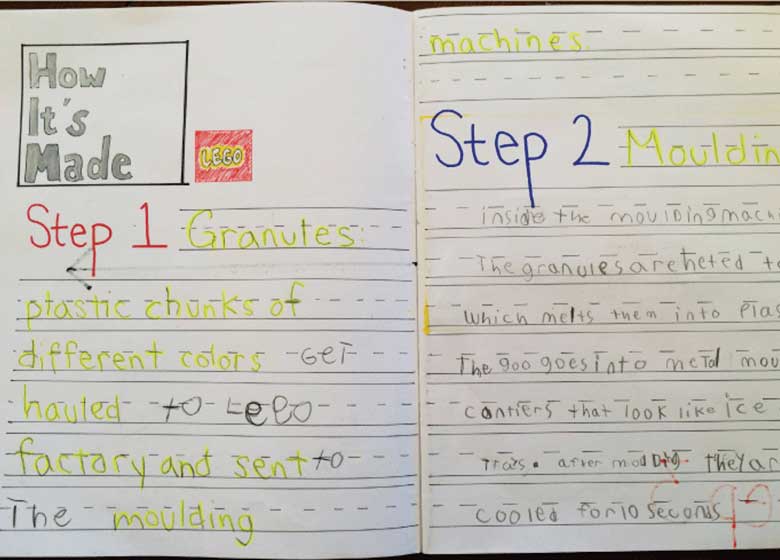 How
It's
Made
LEGO
Step 1 Granules:
plastic chunks of
different colors Get
hauled to Lego
factory and sent to
The moulding
machines.
Step 2 Mouldin
inside the moulDing machi
The granules are heted to
which melts them into Plas
The goo goes into metal mou
contiers that look like ice
Trais. after molDing. They ar
cooled for 10 seconds